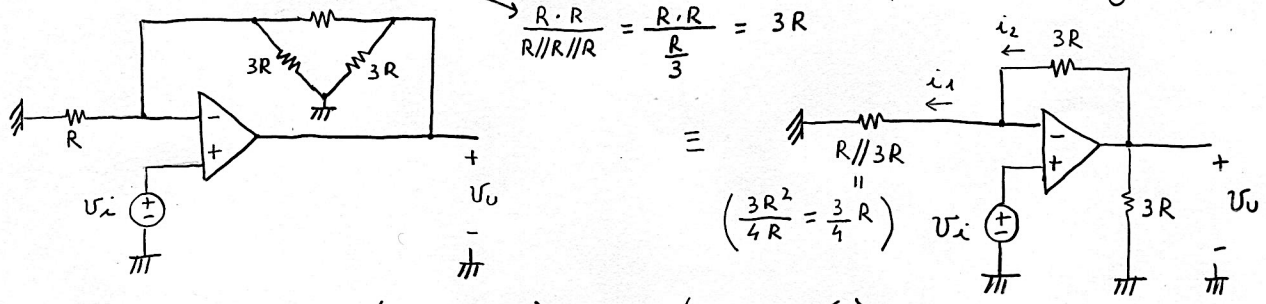 R·R / R//R//R = R·R / (R/3) = 3R
3R
3R
R
−
+
vi
+
−
+
vu
−
≡
i2
3R
i1
R//3R
=
(3R² / 4R = 3/4 R)
−
+
vi
+
−
3R
+
vu
−